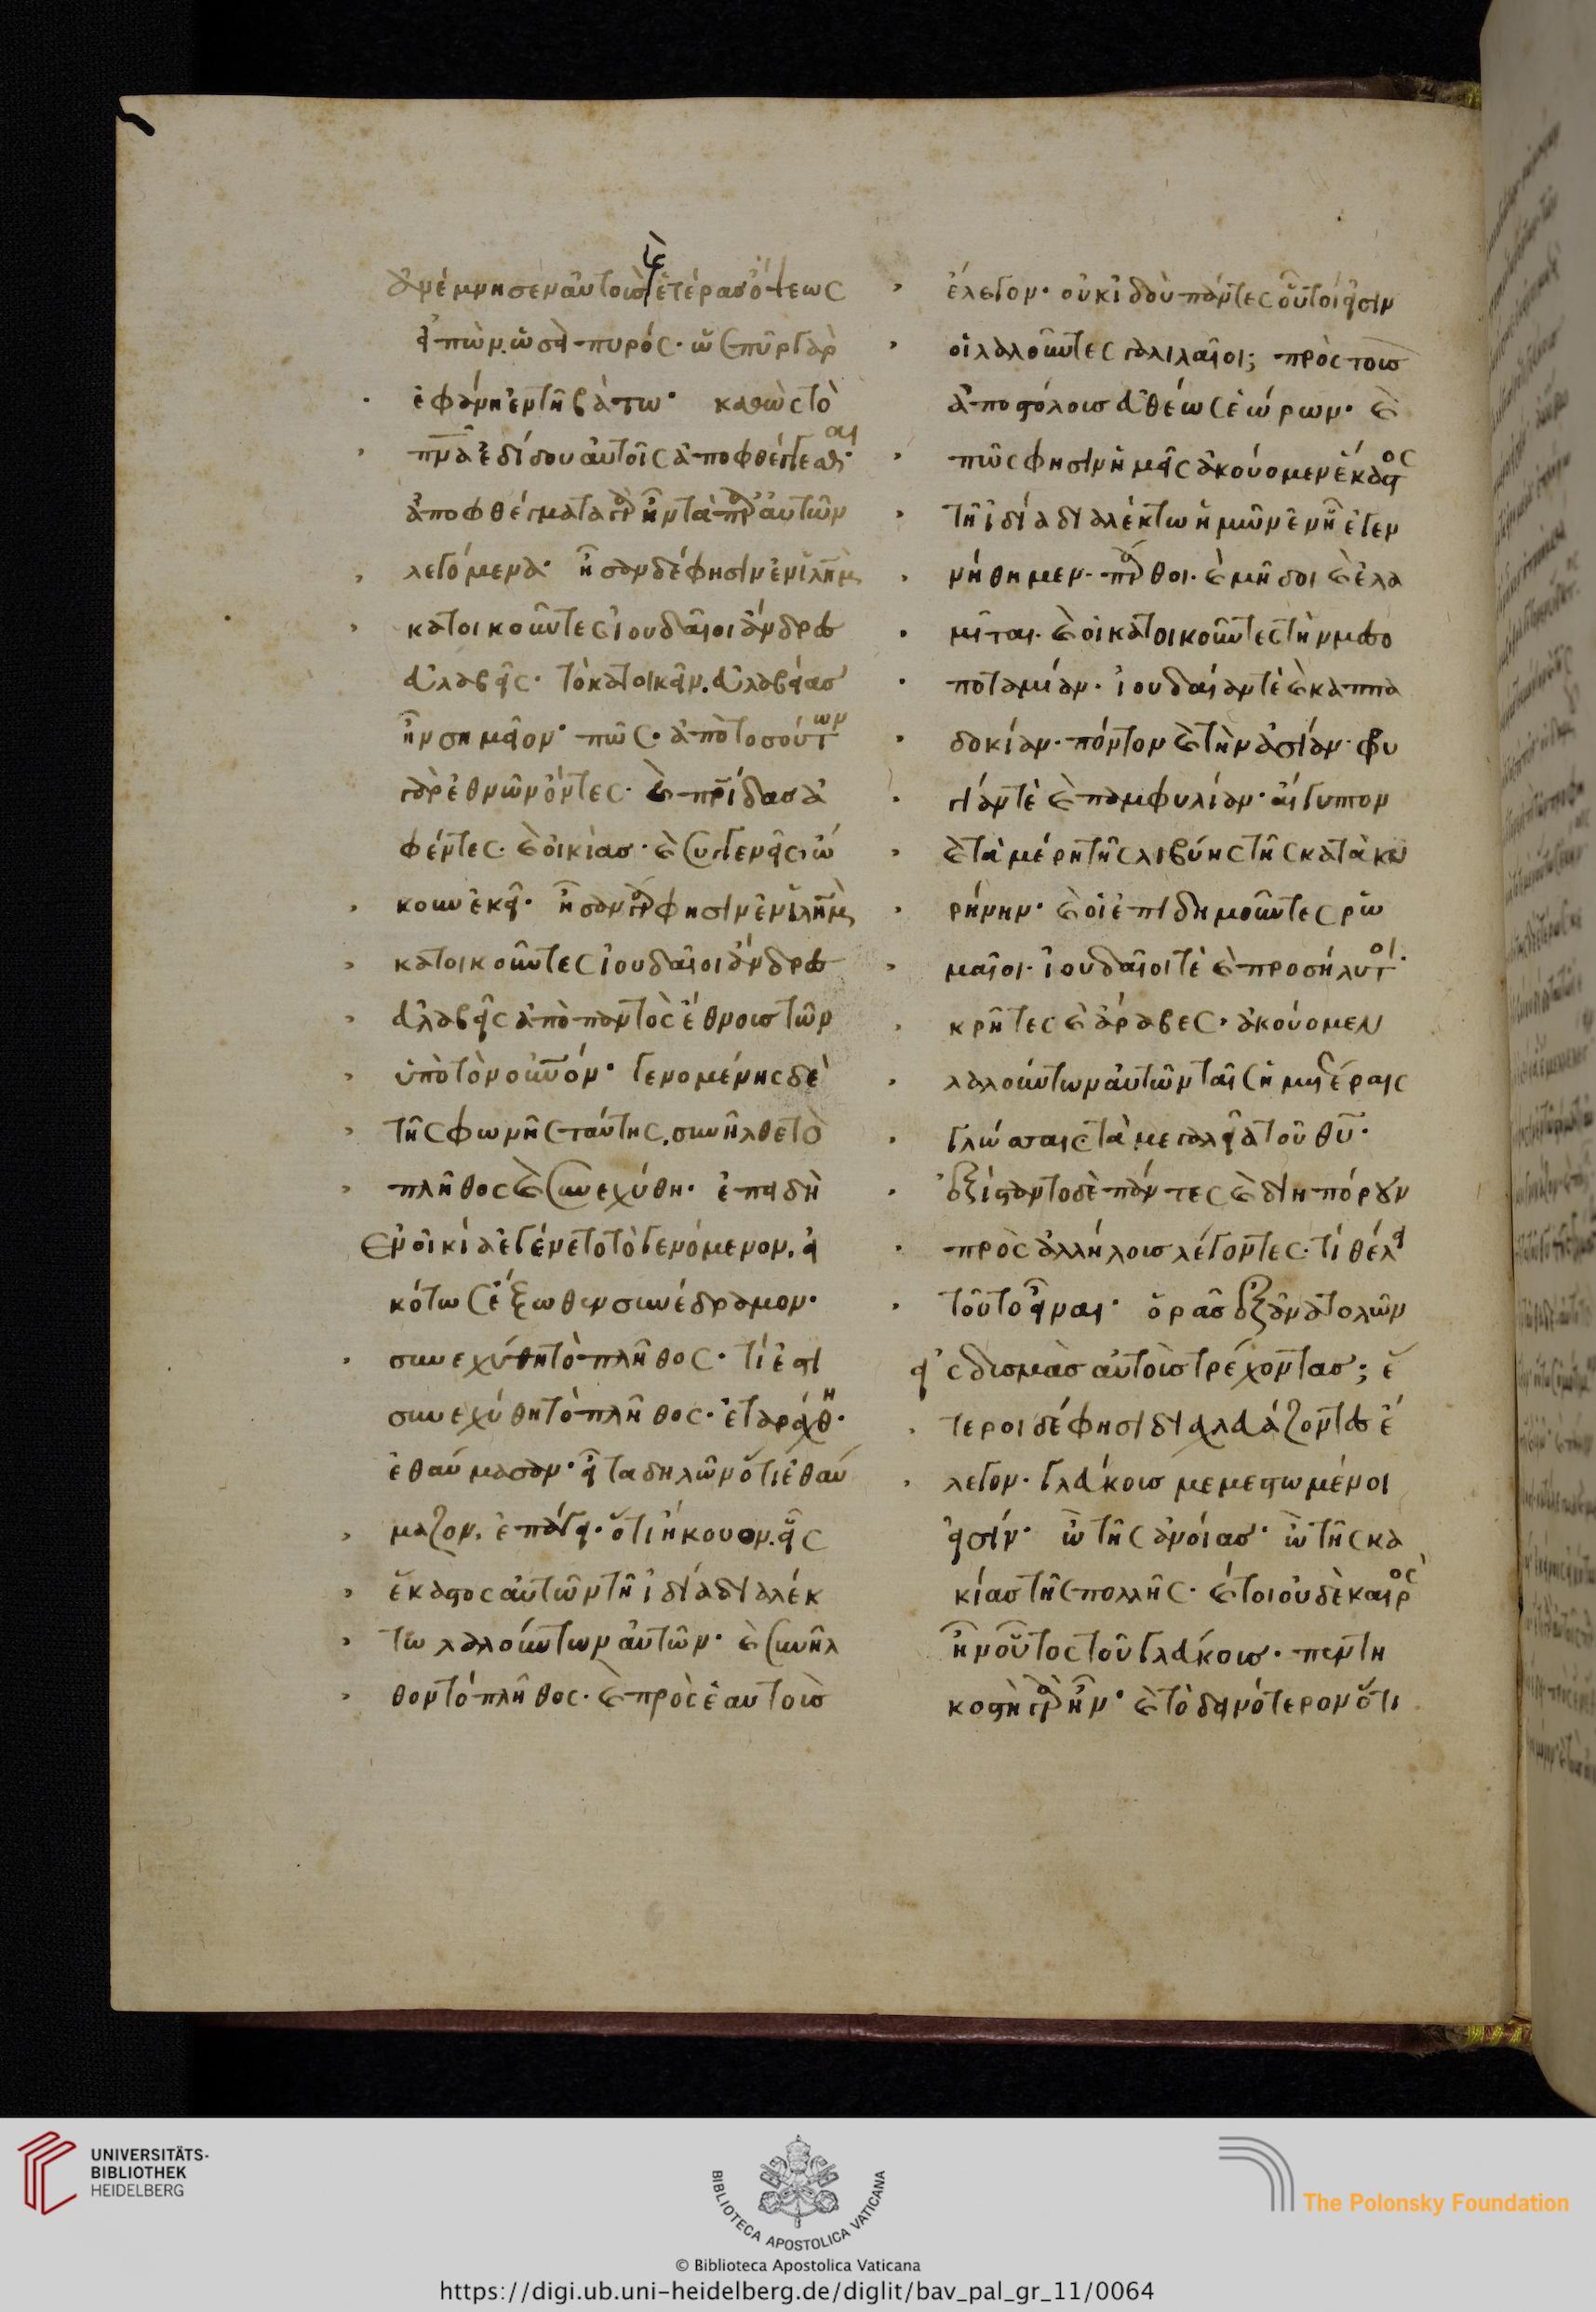 ἀνέμνησεν αὐτοὺς καὶ ἑτέρας ὄψεως
εἰπὼν, ὡσεὶ πυρός· ὡς πῦρ γὰρ
ἐφάνη ἐν τῇ βάτω· καθὼς τὸ
πνα ἐδίδου αὐτοῖς ἀποφθέγγεσθαι·
ἀποφθέγματα γὰρ ἦν τὰ παρ' αὐτῶν
λεγόμενα· ἦσαν δέ φησιν ἐν ιλημ
κατοικοῦντες ἰουδαῖοι ἄνδρες
εὐλαβεῖς· τὸ κατοικεῖν, εὐλαβείας
ἦν σημεῖον· πῶς· ἀπὸ τοσούτων
γὰρ ἐθνῶν ὄντες· καὶ πρίδας ἀ
φέντες· καὶ οἰκίας· καὶ συγγενεῖς, ὤ
κουν ἐκεῖ· ἦσαν γὰρ φησιν ἐν ιλημ
κατοικοῦντες ἰουδαῖοι ἄνδρες
εὐλαβεῖς ἀπὸ παντὸς ἔθνους τῶν
ὑπὸ τὸν οὐνόν· γενομένης δὲ
τῆς φωνῆς ταύτης, συνῆλθε τὸ
πλῆθος καὶ συνεχύθη· ἐπειδὴ
ἐν οἰκία ἐγένετο τὸ γενόμενον, εἰ
κότως ἔξωθεν συνέδραμον·
συνεχύθη τὸ πλῆθος· τί ἐστι
συνεχύθη τὸ πλῆθος· ἐταράχθη·
ἐθαύμασαν· εἶτα δηλῶν ὅτι ἐθαύ
μαζον, ἐπάγει· ὅτι ἤκουον εἷς
ἕκαστος αὐτῶν τῇ ἰδία διαλέκ
τω λαλούντων αὐτῶν· καὶ συνῆλ
θον τὸ πλῆθος· καὶ πρὸς ἑαυτοὺς
ἔλεγον· οὐκ ἰδοὺ πάντες οὗτοι εἰσιν
οἱ λαλοῦντες γαλιλαῖοι; πρὸς τοὺς
ἀποστόλους εὐθέως ἑώρων· καὶ
πῶς φησιν ἡμεῖς ἀκούομεν ἕκαστος
τῇ ἰδία διαλέκτω ἡμῶν ἐν ἧ ἐγεν
νήθημεν· πάρθοι· καὶ μῆδοι καὶ ἐλα
μῖται· καὶ οἱ κατοικοῦντες τὴν μεσο
ποταμίαν· ἰουδαίαν τὲ καὶ καππα
δοκίαν· πόντον καὶ τὴν ἀσίαν· φρυ
γίαν τὲ καὶ παμφυλίαν· αἴγυπτον
καὶ τὰ μέρη τῆς λιβύης τῆς κατὰ κυ
ρήνην· καὶ οἱ ἐπιδημοῦντες ρω
μαῖοι· ἰουδαῖοι τὲ καὶ προσήλυτοι·
κρῆτες καὶ ἄραβες· ἀκούομεν
λαλούντων αὐτῶν ταῖς ἡμετέραις
γλώσσαις τὰ μεγαλεῖα τοῦ θυ·
ἐξίσταντο δὲ πάντες καὶ διηπόρουν
πρὸς ἀλλήλους λέγοντες· τί θέλει
τοῦτο εἶναι· ὁρᾶς ἐξ ἀνατολῶν
εἰς δυσμὰς αὐτοὺς τρέχοντας; ἕ
τεροι δέ φησι διαχλευάζοντες ἔ
λεγον· γλεύκους μεμεστωμένοι
εἰσίν· ὢ τῆς ἀνοίας· ὢ τῆς κα
κίας τῆς πολλῆς· καί τοι οὐδὲ καιρὸς
ἦν οὗτος τοῦ γλεύκους· πεντη
κοστὴ γὰρ ἦν· καὶ τὸ δεινότερον ὅτι
UNIVERSITÄTS-
BIBLIOTHEK
HEIDELBERG
BIBLIOTECA APOSTOLICA VATICANA
The Polonsky Foundation
© Biblioteca Apostolica Vaticana
https://digi.ub.uni-heidelberg.de/diglit/bav_pal_gr_11/0064